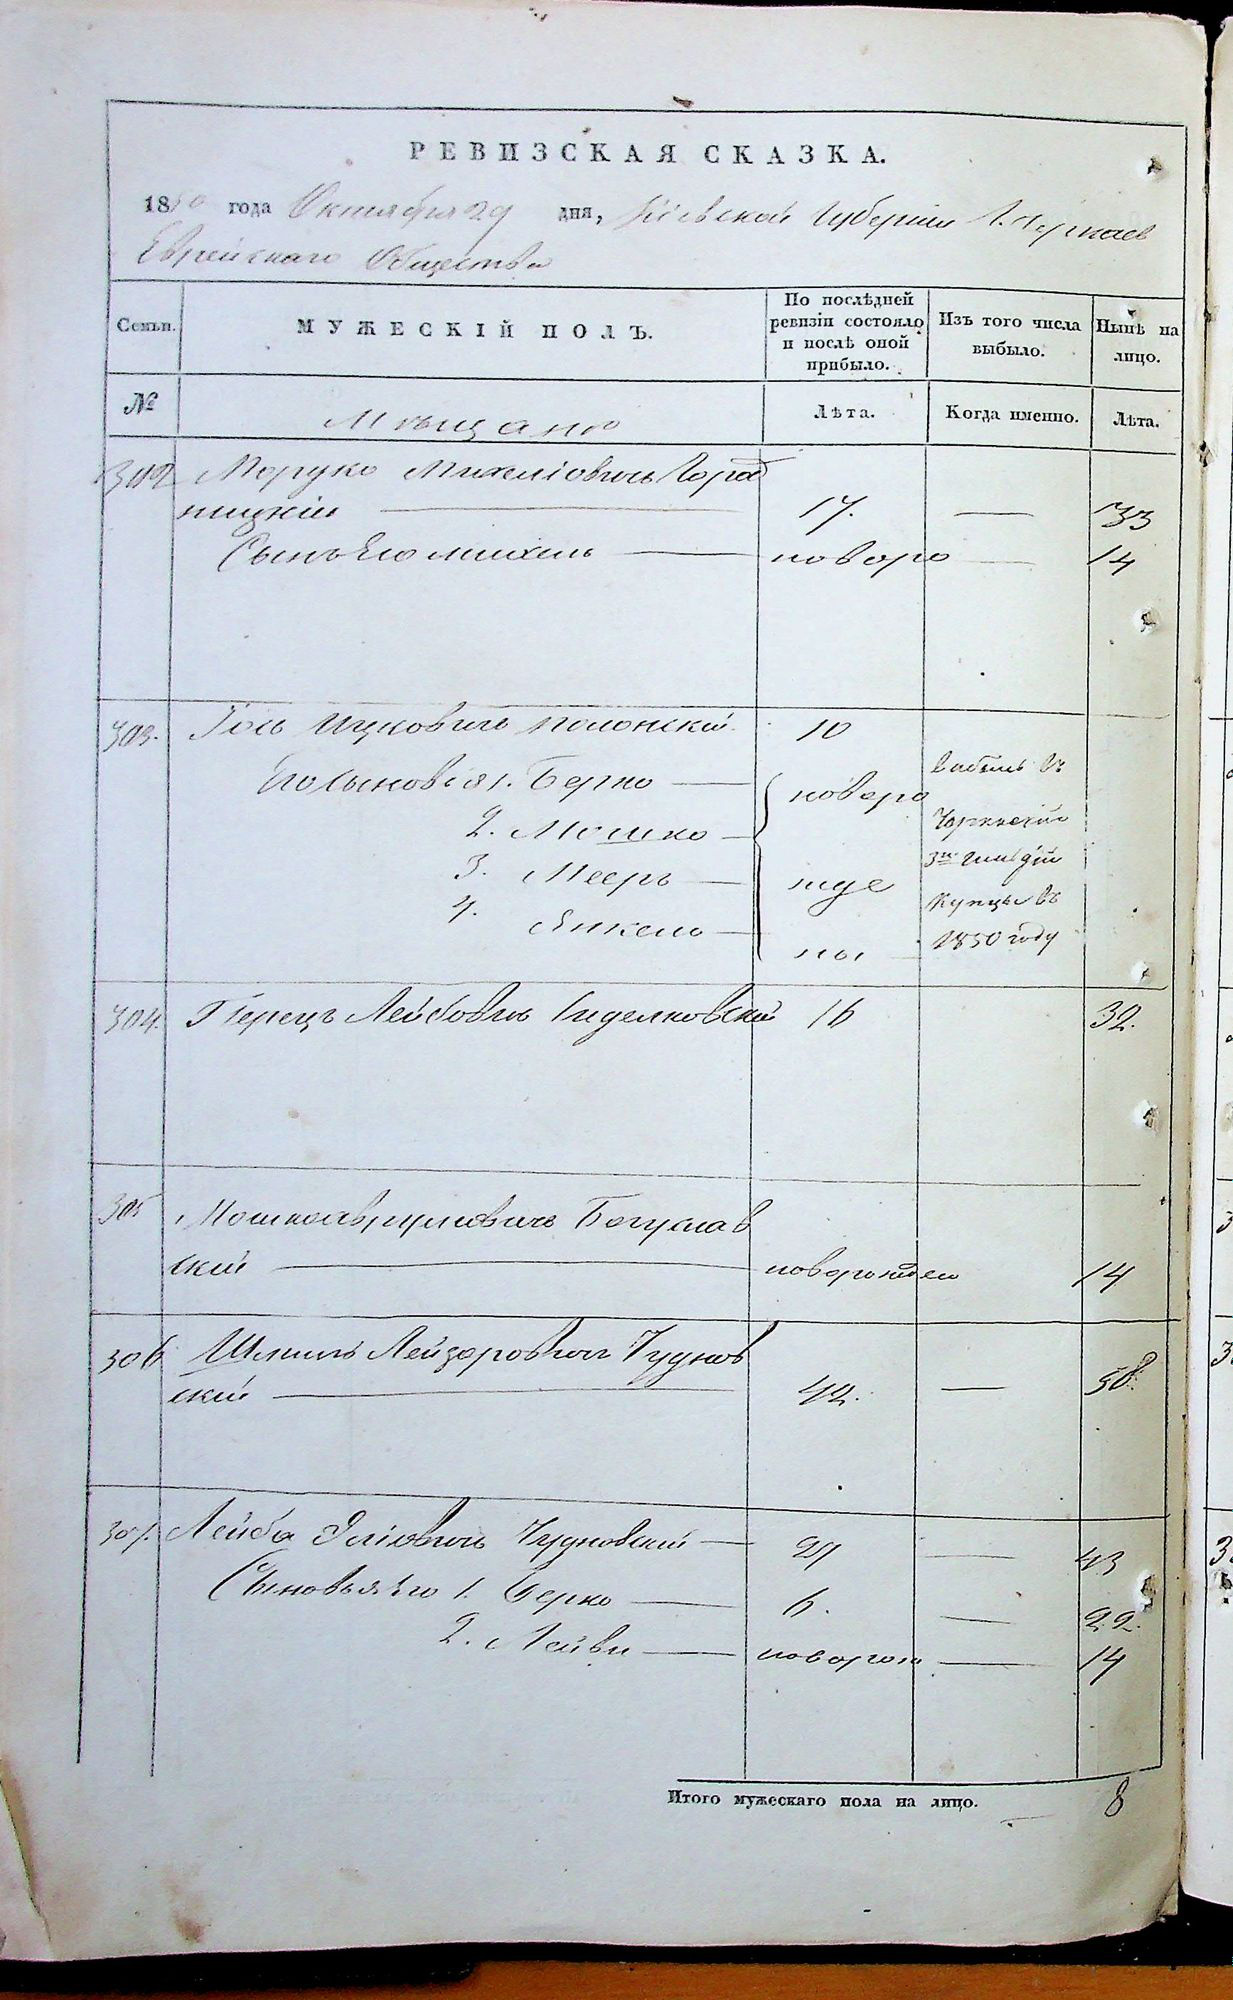 РЕВИЗСКАЯ СКАЗКА.
1850 года Октября 29 дня, Кіевской Губерніи Г. Черкасъ
Еврейскаго Общества
Семьи.
МУЖЕСКІЙ ПОЛЪ.
По послѣдней ревизіи состояло и послѣ оной прибыло.
Изъ того числа выбыло.
Нынѣ на лицо.
№
Мѣщане
Лѣта.
Когда именно.
Лѣта.
302 Михеліовичь Город
ницкій — 17. — 33
Сынъ Его Михель — новоро — 14
303. Іось Ицковичь Полонскій 10
Его Сыновья 1. Берко — новоро
2. Мошко —
3. Мееръ — жде
4. Янкель — ны
въ
Черкаскіи
3й Гильдіи
Купцы въ
1850 году
304. Перецъ Лейбовичь Сиделковскій 16 32.
305 Мошко Аврумовичь Богуслав
скій — новорожден 14
306 Шмиль Лейзеровичь Чуднов
скій — 42. — 58.
307. Лейба Эліовичь Чудновскій — 27 — 43
Сыновья Его 1. Берко — 6. — 22.
2. Лейви — новорож — 14
Итого мужескаго пола на лицо. — 8